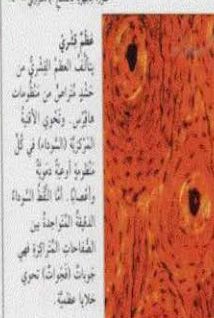 عَظْمٌ قِشْرِيّ
يتألَّفُ العظمُ القِشْرِيُّ من
حَشْدٍ مُتراصٍّ من مَنظوماتِ
هاڤِرْس. وتَحْوي الأقنيةُ
المَرْكَزيَّةُ (السَّوداء) في كُلِّ
مَنظومةٍ أوعيةً دمويَّةً
وأعْصابًا. أمّا النُّقَطُ السَّوداءُ
الدقيقةُ المُتواجِدةُ بين
الصُّفاحاتِ المُتَراكِزةِ فهي
جَوباتٌ (فَجَواتٌ) تَحوي
خَلايا عَظْميَّة.